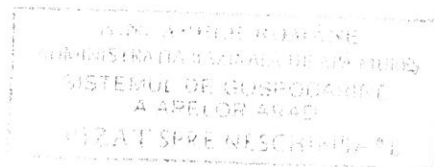 A.N. APELE ROMANE
ADMINISTRATIA
SISTEMUL DE GOSPODARIRE
A APELOR ARAD
VIZAT SPRE NESCHIMBARE